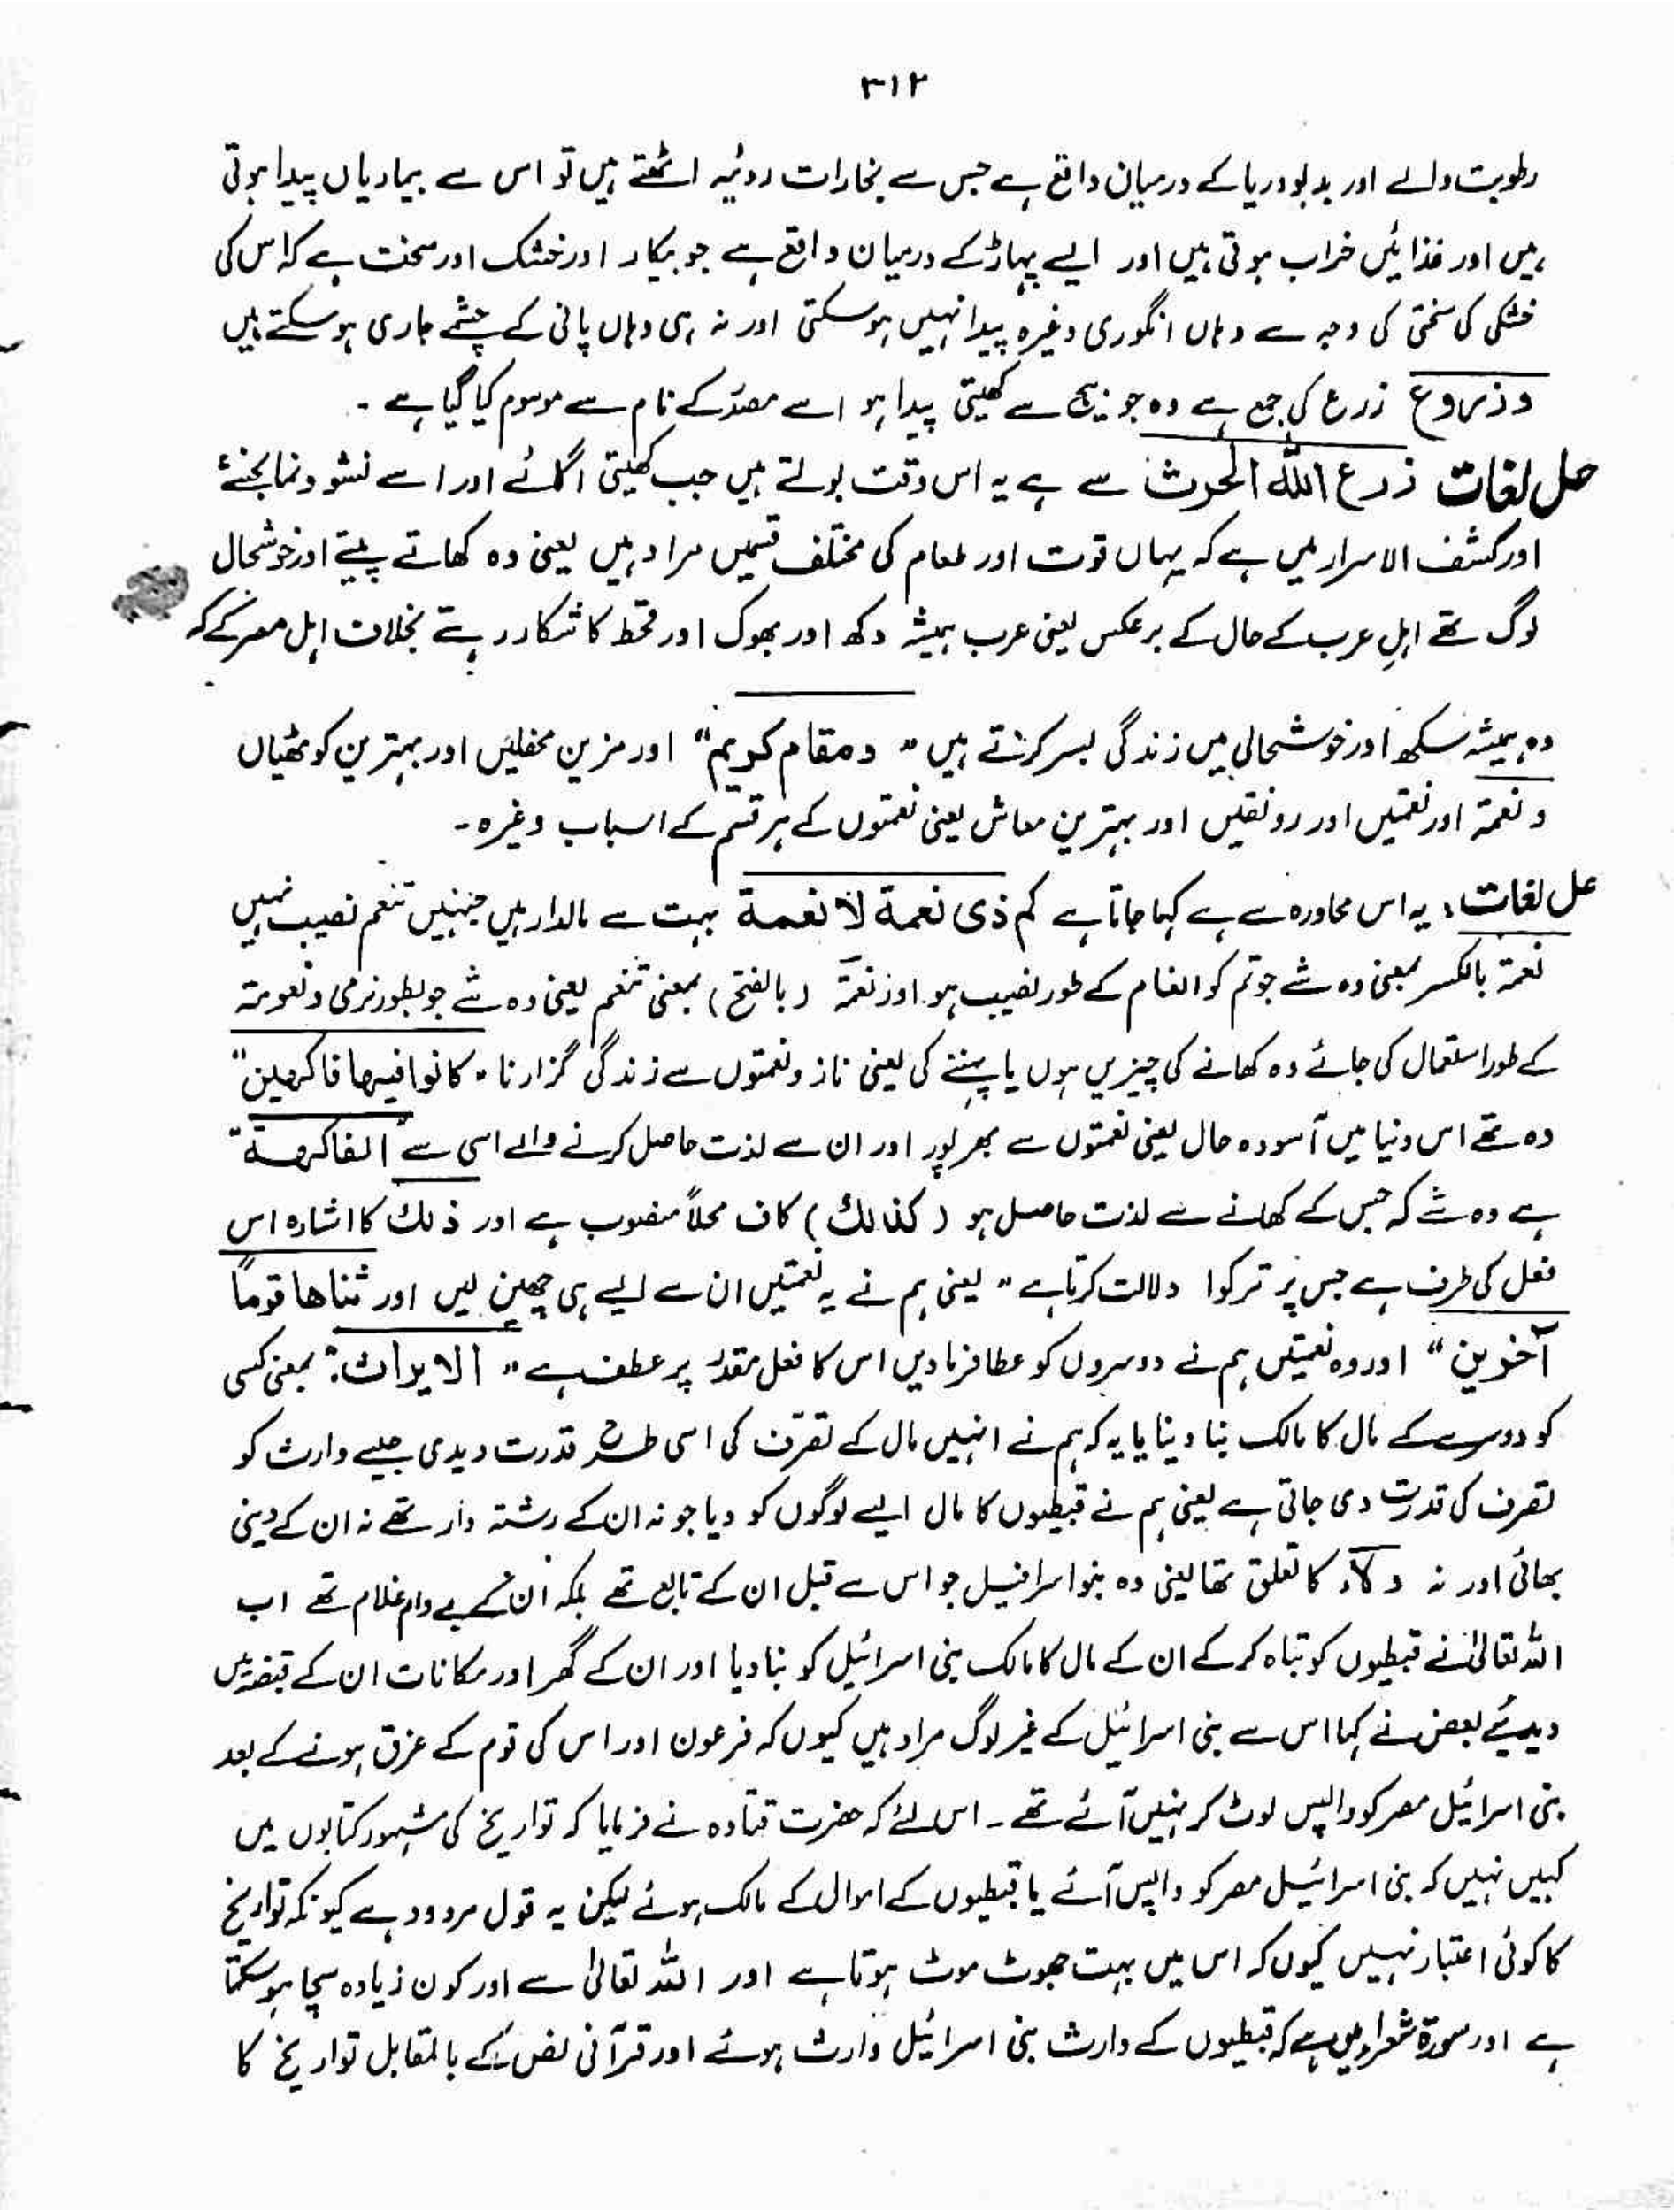 ۳۱۲
رطوبت والے اور بدبودریا کے درمیان واقع ہے جس سے بخارات ردیّہ اٹھتے ہیں تو اس سے بیماریاں پیدا ہوتی
ہیں اور غذائیں خراب ہوتی ہیں اور ایسے پہاڑ کے درمیان واقع ہے جو بیکار اور خشک اور سخت ہے کہ اس کی
خشکی کی سختی کی وجہ سے وہاں انگوری وغیرہ پیدا نہیں ہوسکتی اور نہ ہی وہاں پانی کے چشمے جاری ہوسکتے ہیں
وزروع زرع کی جمع ہے وہ جو بیج سے کھیتی پیدا ہو اسے مصدر کے نام سے موسوم کیا گیا ہے ۔
حل لغات زرع اللّٰہ الحرث سے ہے یہ اس وقت بولتے ہیں جب کھیتی اگائے اور اسے نشوونما بخشے
اور کشف الاسرار میں ہے کہ یہاں قوت اور طعام کی مختلف قسمیں مراد ہیں یعنی وہ کھاتے پیتے اور خوشحال
لوگ تھے اہلِ عرب کے حال کے برعکس یعنی عرب ہمیشہ دکھ اور بھوک اور قحط کا شکار رہتے بخلاف اہل مصر کے کہ
وہ ہمیشہ سکھ اور خوشحالی میں زندگی بسر کرتے ہیں " ومقام کریم " اور مزین محفلیں اور بہترین کوٹھیاں
ونعمۃ اور نعمتیں اور رونقیں اور بہترین معاش یعنی نعمتوں کے ہر قسم کے اسباب وغیرہ ۔
حل لغات ؛ یہ اس محاورہ سے ہے کہا جاتا ہے کم ذی نعمۃ لا نعمۃ بہت سے مالدار ہیں جنہیں تنعم نصیب نہیں
نعمۃ بالکسر بمعنی وہ شے جو تم کو انعام کے طور نصیب ہو اور نَعمۃ ( بالفتح ) بمعنی تنعم یعنی وہ شے جو بطور نرمی و نعومۃ
کے طور استعمال کی جائے وہ کھانے کی چیزیں ہوں یا پہننے کی یعنی ناز ونعمتوں سے زندگی گزارنا ۔ کانوا فیہا فاکہین "
وہ تھے اس دنیا میں آسودہ حال یعنی نعمتوں سے بھرپور اور ان سے لذت حاصل کرنے والے اسی سے " الفاکہۃ "
ہے وہ شے کہ جس کے کھانے سے لذت حاصل ہو ( کذالک ) کاف محلاً منصوب ہے اور ذٰلک کا اشارہ اس
فعل کی طرف ہے جس پر ترکوا دلالت کرتا ہے " یعنی ہم نے یہ نعمتیں ان سے ایسے ہی چھین لیں اور ثناھا قوماً
آخرین " اور وہ نعمتیں ہم نے دوسروں کو عطا فرمادیں اس کا فعل مقدر پر عطف ہے " الایراث ؛ بمعنی کسی
کو دوسرے کے مال کا مالک بنا دینا یا یہ کہ ہم نے انہیں مال کے تصرف کی اسی طرح قدرت دیدی جیسے وارث کو
تصرف کی قدرت دی جاتی ہے یعنی ہم نے قبطیوں کا مال ایسے لوگوں کو دیا جو نہ ان کے رشتہ دار تھے نہ ان کے دینی
بھائی اور نہ ولاء کا تعلق تھا یعنی وہ بنواسرائیل جو اس سے قبل ان کے تابع تھے بلکہ ان کے بے دام غلام تھے اب
اللہ تعالیٰ نے قبطیوں کو تباہ کرکے ان کے مال کا مالک بنی اسرائیل کو بنا دیا اور ان کے گھر اور مکانات ان کے قبضہ میں
دیدیئے بعض نے کہا اس سے بنی اسرائیل کے غیر لوگ مراد ہیں کیوں کہ فرعون اور اس کی قوم کے غرق ہونے کے بعد
بنی اسرائیل مصر کو واپس لوٹ کر نہیں آئے تھے ۔ اس لئے کہ حضرت قتادہ نے فرمایا کہ تواریخ کی مشہور کتابوں میں
کہیں نہیں کہ بنی اسرائیل مصر کو واپس آئے یا قبطیوں کے اموال کے مالک ہوئے لیکن یہ قول مردود ہے کیونکہ تواریخ
کا کوئی اعتبار نہیں کیوں کہ اس میں بہت جھوٹ موٹ ہوتا ہے اور اللہ تعالیٰ سے اور کون زیادہ سچا ہوسکتا
ہے اور سورۃ شعراء میں ہے کہ قبطیوں کے وارث بنی اسرائیل وارث ہوئے اور قرآنی نص کے بالمقابل تواریخ کا